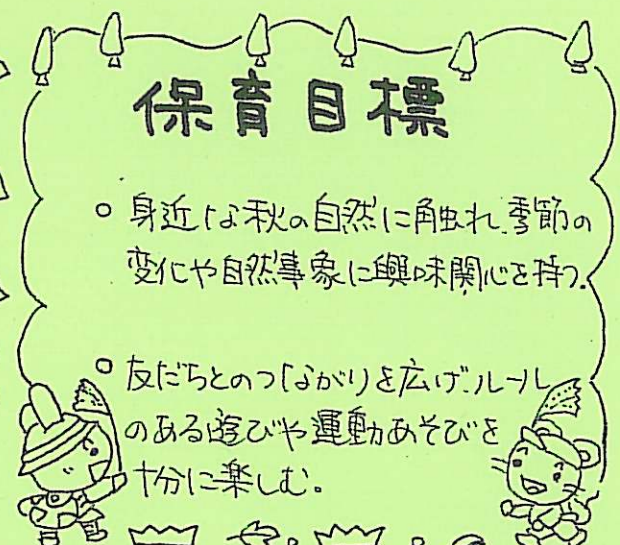 保育目標
○ 身近な秋の自然に触れ、季節の
変化や自然事象に興味関心を持つ。
○ 友だちとのつながりを広げ、ルール
のある遊びや運動あそびを
十分に楽しむ。